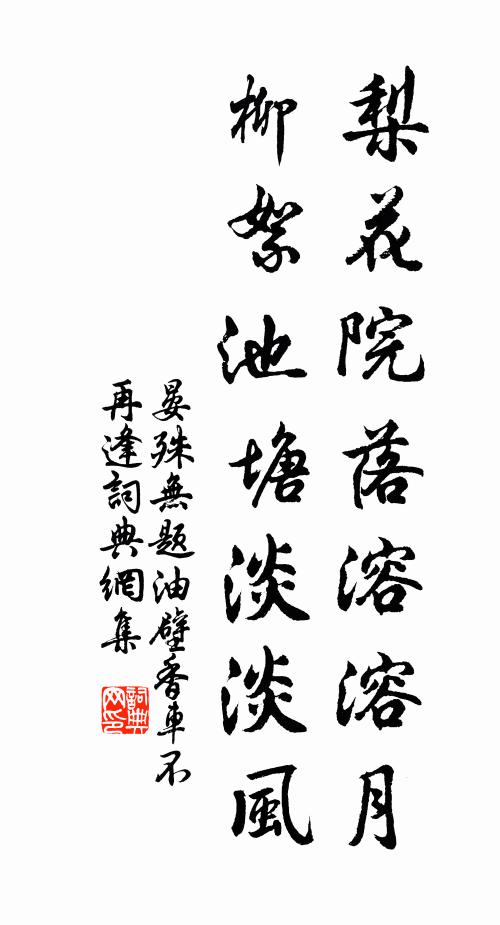 梨花院落溶溶月
柳絮池塘淡淡風
晏殊無題油壁香車不
再逢詞典網集
詞典
网印